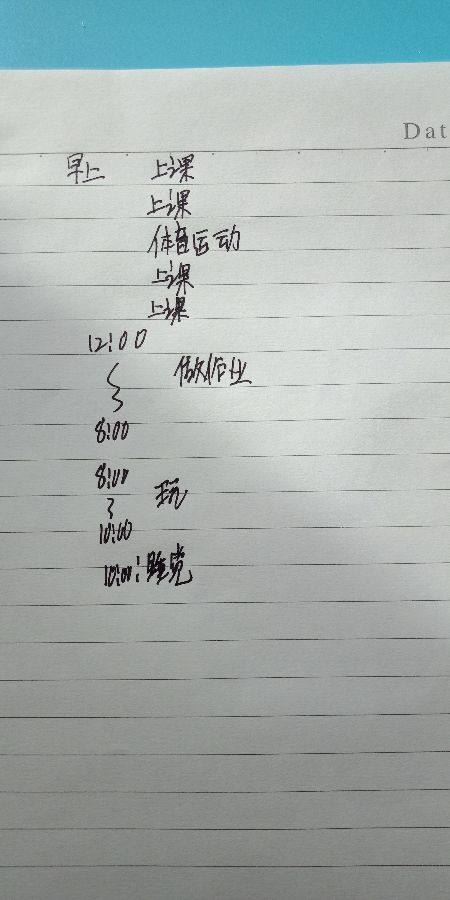 Dat
早上 上课
上课
体育运动
上课
上课
12:00
~ 做作业
8:00
8:00
~ 玩
10:00
10:00: 睡觉